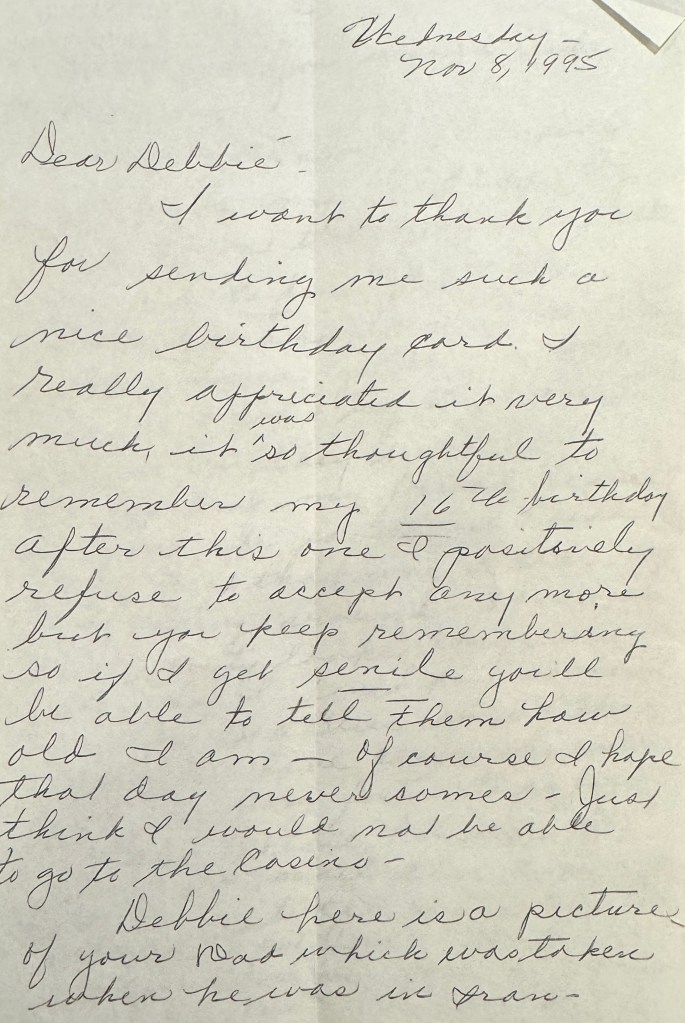 Wednesday –
Nov 8, 1995
Dear Debbie –
I want to thank you
for sending me such a
nice birthday card. I
really appriciated it very
much, it was so thoughtful to
remember my 16th birthday
After this one I positively
refuse to accept any more
but you keep rememberang
so if I get senile you'll
be able to tell them how
old I am – Of course I hope
that day never comes – Just
think I would not be able
to go to the Casino –
Debbie here is a picture
of your Dad which was taken
when he was in Iran –